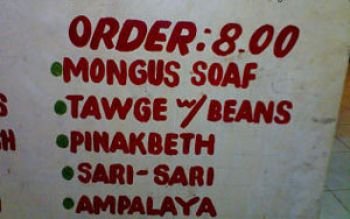 ORDER: 8.00
MONGUS SOAF
TAWGE w/ BEANS
PINAKBETH
SARI-SARI
AMPALAYA